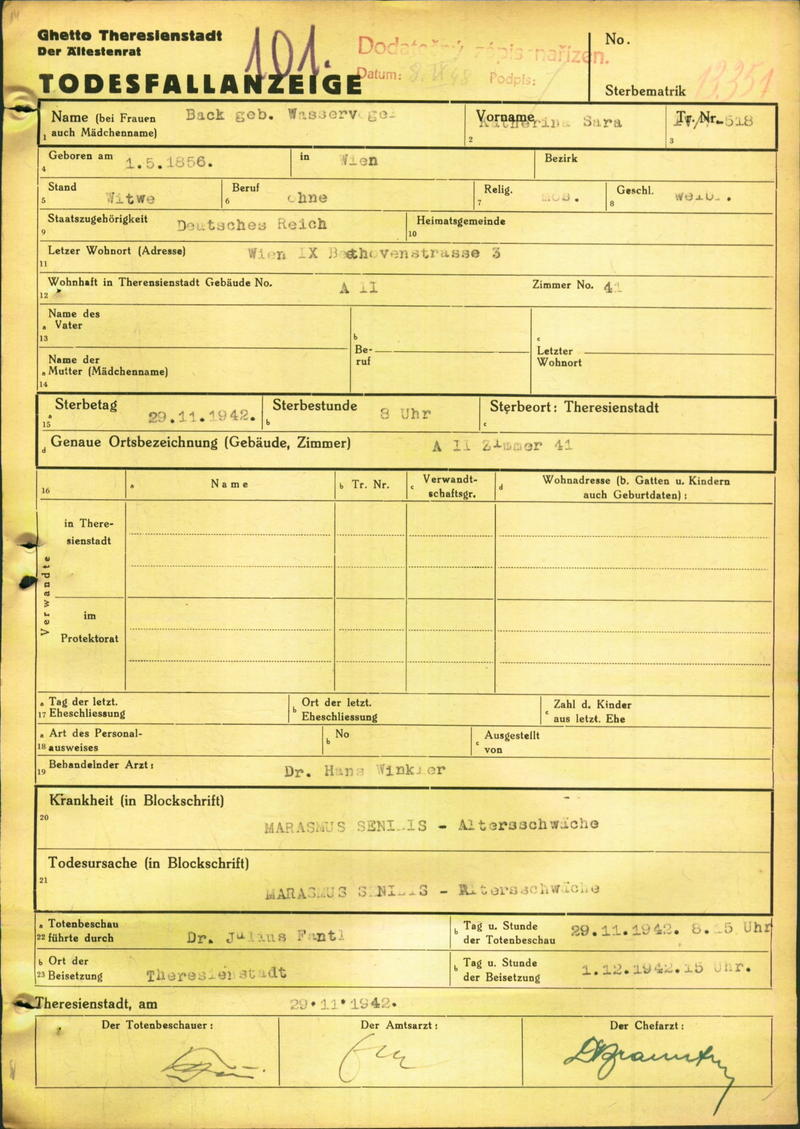 Ghetto Theresienstadt
Der Ältestenrat
101.
Dodatečný zápis nařízen.
Datum: Podpis:
TODESFALLANZEIGE
No.
Sterbematrik 13.351
Name (bei Frauen auch Mädchenname) Back geb.
1
Vorname Sara
2
Tr. Nr.
3
Geboren am 1.5.1856. in Wien Bezirk
4
Stand Witwe Beruf ohne Relig. Geschl. weibl.
5 6 7 8
Staatszugehörigkeit Deutsches Reich Heimatsgemeinde
9 10
Letzer Wohnort (Adresse) Wien IX Beethovenstrasse 3
11
Wohnhaft in Therensienstadt Gebäude No. A II Zimmer No. 41
12
Name des
a Vater
13
b Be-
ruf
c
Letzter
Wohnort
Name der
a Mutter (Mädchenname)
14
a Sterbetag 29.11.1942. b Sterbestunde 8 Uhr c Sterbeort: Theresienstadt
15
d Genaue Ortsbezeichnung (Gebäude, Zimmer) A II Zimmer 41
16 a Name b Tr. Nr. c Verwandt-
schaftsgr. d Wohnadresse (b. Gatten u. Kindern
auch Geburtdaten) :
Verwandte
in There-
sienstadt
im
Protektorat
a Tag der letzt.
17 Eheschliessung
b Ort der letzt.
Eheschliessung
c Zahl d. Kinder
aus letzt. Ehe
a Art des Personal-
18 ausweises
b No
c Ausgestellt
von
19 Behandelnder Arzt : Dr. Hans Winkler
Krankheit (in Blockschrift)
20
MARASMUS SENILIS - Altersschwäche
Todesursache (in Blockschrift)
21
MARASMUS SENILIS - Altersschwäche
a Totenbeschau
22 führte durch Dr. Julius Fantl
b Tag u. Stunde
der Totenbeschau 29.11.1942. Uhr
b Ort der
23 Beisetzung Theresienstadt
b Tag u. Stunde
der Beisetzung 1.12.1942. 15 Uhr.
Theresienstadt, am 29.11.1942.
Der Totenbeschauer : Der Amtsarzt : Der Chefarzt :